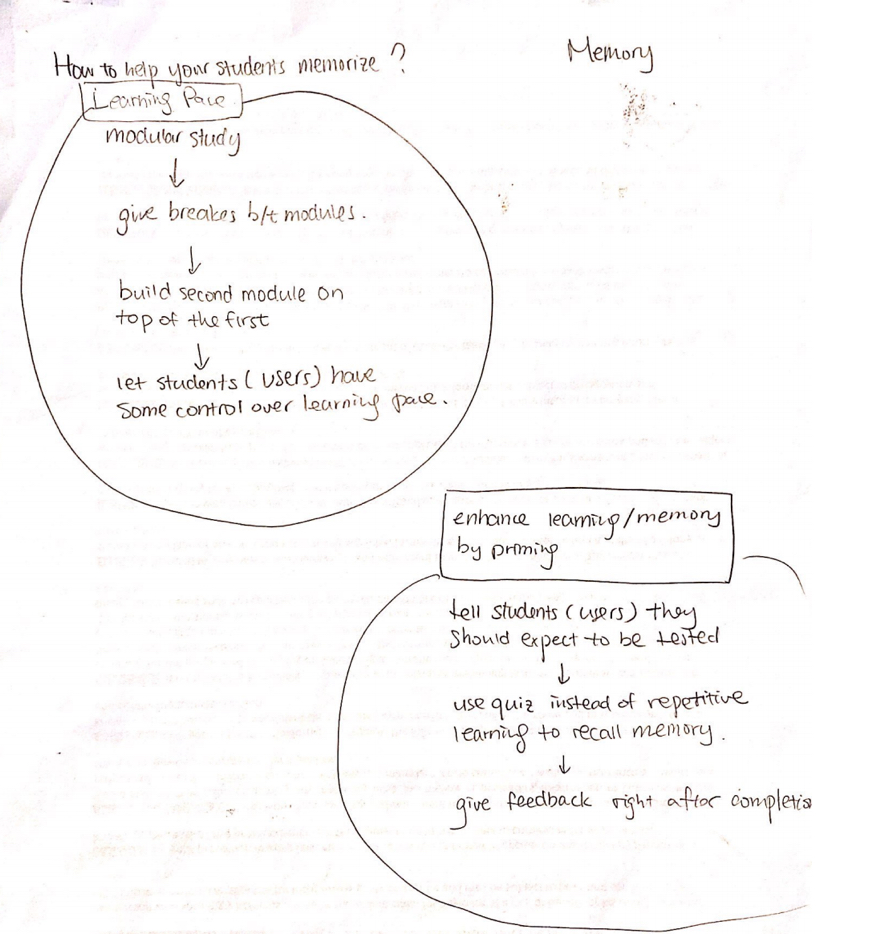 How to help your students memorize?
Memory
Learning Pace
modular study
↓
give breakes b/t modules.
↓
build second module on
top of the first
↓
let students (users) have
some control over learning pace.
enhance learning/memory
by priming
tell students (users) they
should expect to be tested
↓
use quiz instead of repetitive
learning to recall memory.
↓
give feedback right after completio